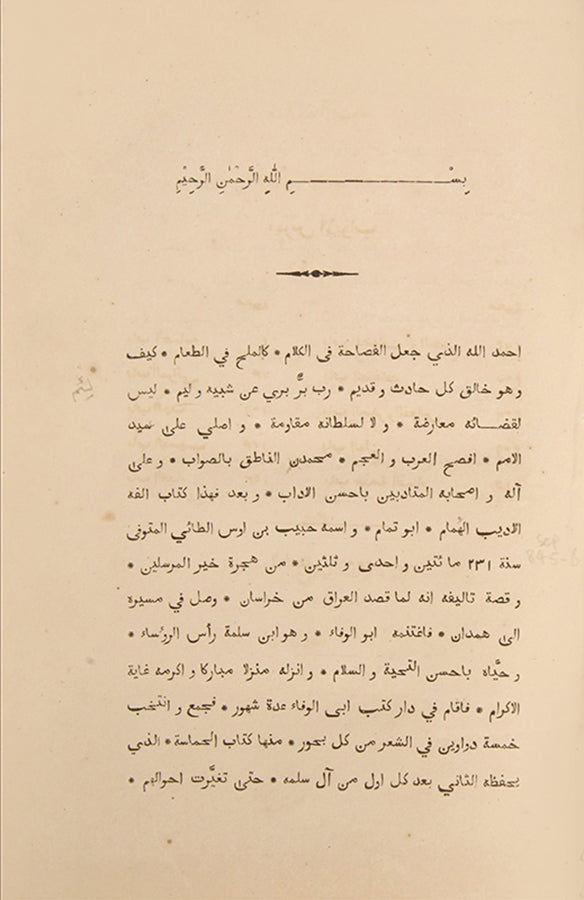 بِسْــــــــــــمِ اللهِ الرَّحْمٰنِ الرَّحِيْمِ
احمد الله الذي جعل الفصاحة في الكلام * كالملح في الطعام * كيف
وهو خالق كل حادث وقديم * رب برٌّ بري عن شبيه وليم * ليس
لقضـــائه معارضة * ولا لسلطانه مقاومة * واصلي على سيد
الامم * افصح العرب والعجم * محمدن الناطق بالصواب * وعلى
آله واصحابه المتادبين باحسن الاداب * وبعد فهذا كتاب الفه
الاديب الهمام * ابو تمام * واسمه حبيب بن اوس الطائي المتوفى
سنة ٢٣١ مائتين واحدى وثلثين * من هجرة خير المرسلين *
وقصة تاليفه انه لما قصد العراق من خراسان * وصل في مسيره
الى همدان * فاغتنمه ابو الوفاء * وهو ابن سلمة رأس الرؤساء *
وحيَّاه باحسن التحية والسلام * وانزله منزلا مباركا واكرمه غاية
الاكرام * فاقام في دار كتب ابى الوفاء عدة شهور * فجمع وانتخب
خمسة دواوين في الشعر من كل بحور * منها كتاب الحماسة * الذي
يحفظه الثاني بعد كل اول من آل سلمه * حتى تغيَّرت احوالهم *